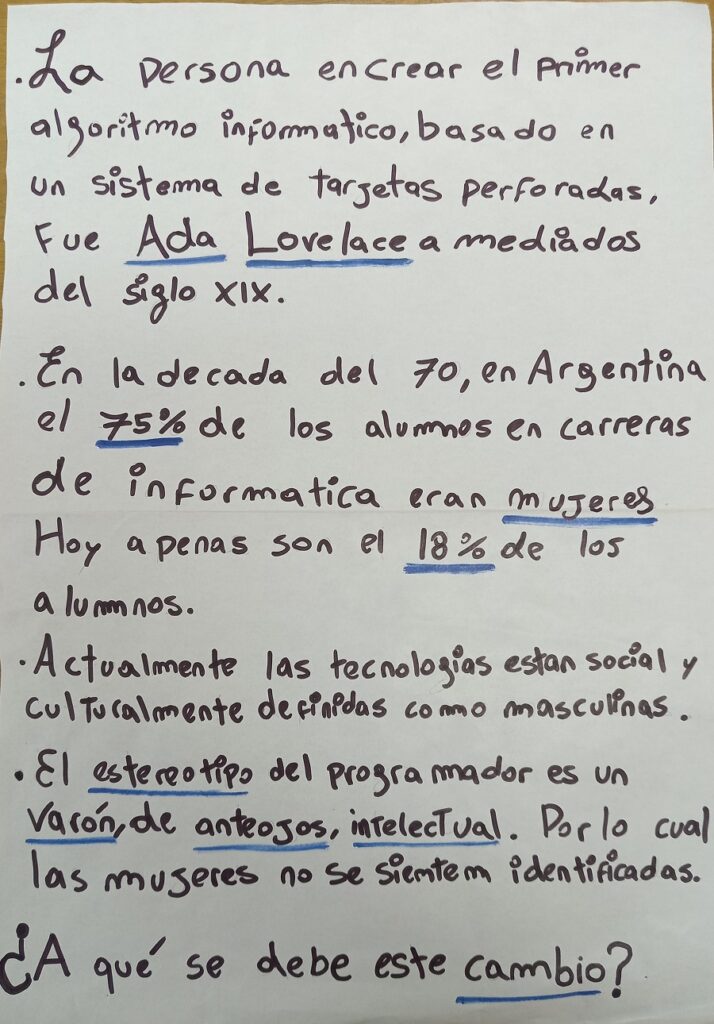 . La persona en crear el primer
algoritmo informatico, basado en
un sistema de targetas perforadas,
Fue Ada Lovelace a mediados
del siglo XIX.
. En la decada del 70, en Argentina
el 75% de los alumnos en carreras
de informatica eran mujeres
Hoy apenas son el 18% de los
alumnos.
. Actualmente las tecnologias estan social y
culturalmente definidas como masculinas.
. El estereotipo del programador es un
varón, de anteojos, intelectual. Por lo cual
las mujeres no se sientem identificadas.
¿A qué se debe este cambio?